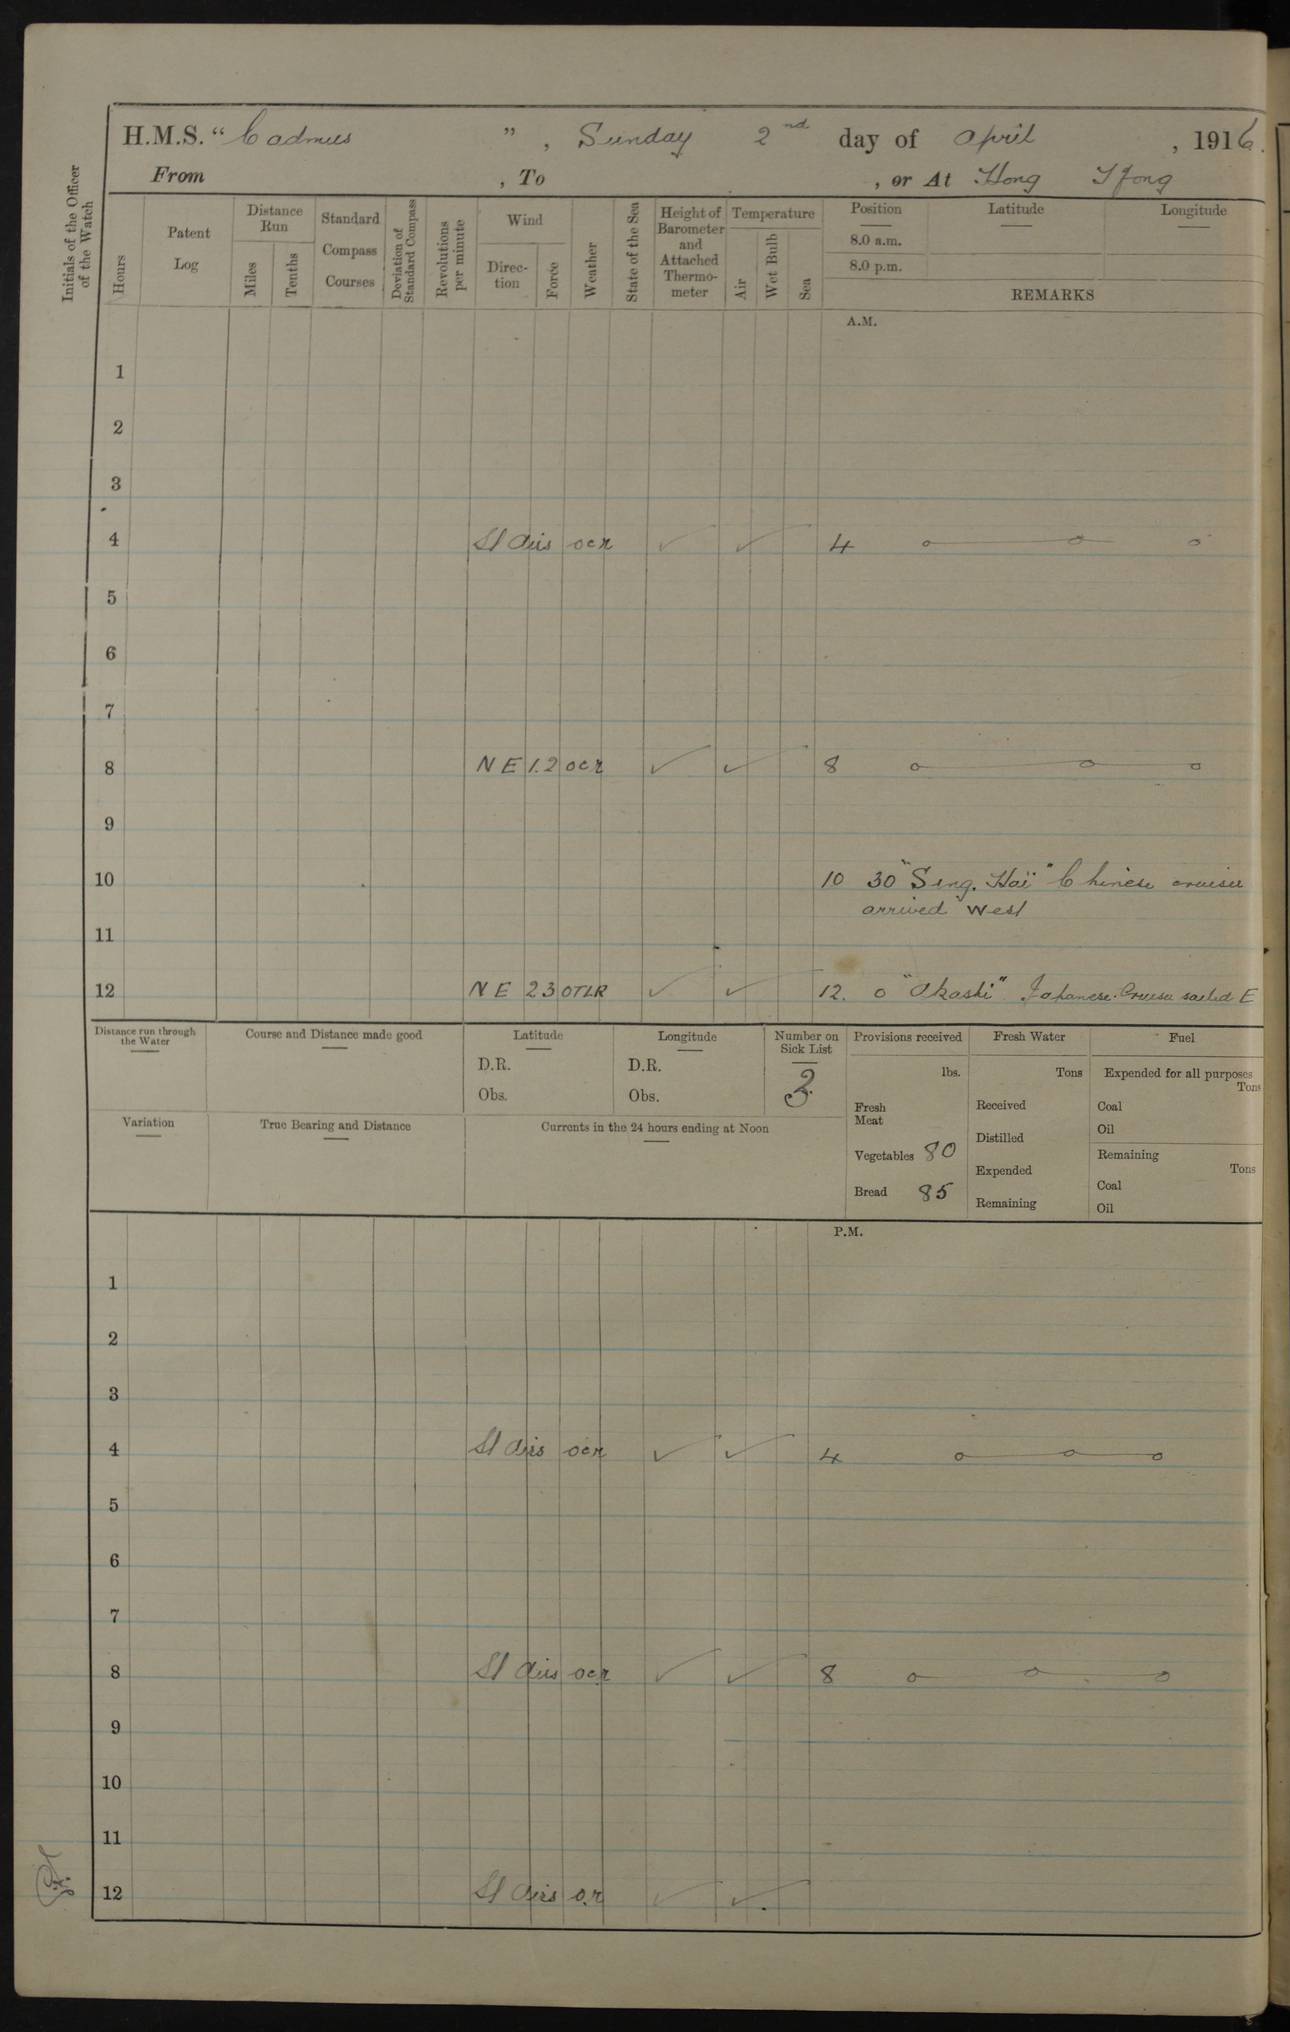 H.M.S. "Cadmus", Sunday 2nd day of April, 1916.
From , To , or At Hong Kong
Initials of the Officer of the Watch
Hours
Patent Log
Distance Run
Miles
Tenths
Standard Compass Courses
Deviation of Standard Compass
Revolutions per minute
Wind
Direction
Force
Weather
State of the Sea
Height of Barometer and Attached Thermometer
Temperature
Air
Wet Bulb
Sea
Position Latitude Longitude
8.0 a.m.
8.0 p.m.
REMARKS
A.M.
1
2
3
4 Lt airs ocr ✓ ✓ 4 o o o
5
6
7
8 NE 1.2 ocr ✓ ✓ 8 o o o
9
10 10 30 "Sing. Hai" Chinese cruiser
arrived West
11
12 NE 2 3 OTLR ✓ ✓ 12. 0 "Akashi" Japanese Cruiser sailed E
Distance run through the Water
Course and Distance made good
Latitude
D.R.
Obs.
Longitude
D.R.
Obs.
Number on Sick List
Variation
True Bearing and Distance
Currents in the 24 hours ending at Noon
Provisions received
lbs.
Fresh Meat
Vegetables 80
Bread 85
Fresh Water
Tons
Received
Distilled
Expended
Remaining
Fuel
Expended for all purposes
Tons
Coal
Oil
Remaining
Tons
Coal
Oil
P.M.
1
2
3
4 Lt airs ocr ✓ ✓ 4 o o o
5
6
7
8 Lt airs ocr ✓ ✓ 8 o o o
9
10
11
12 Lt airs o.r ✓ ✓